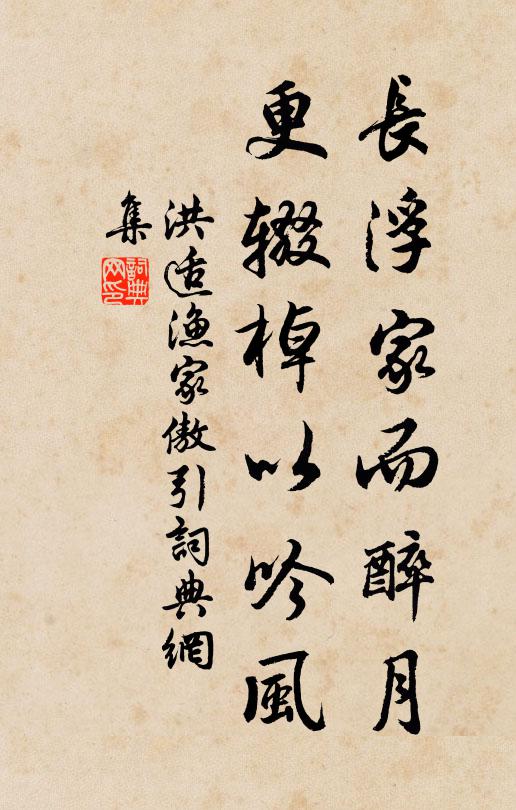 長浮家而醉月
更辍棹以吟風
洪适漁家傲引詞典網
集
詞典网印